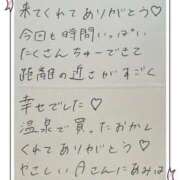 来てくれてありがとう♡
今回も時間いっぱい
たくさんちゅーできて
距離の近さがすごく
幸せでした♡
温泉で買ったおかし
くれてありがとう♡
やさしいAさんにあみは